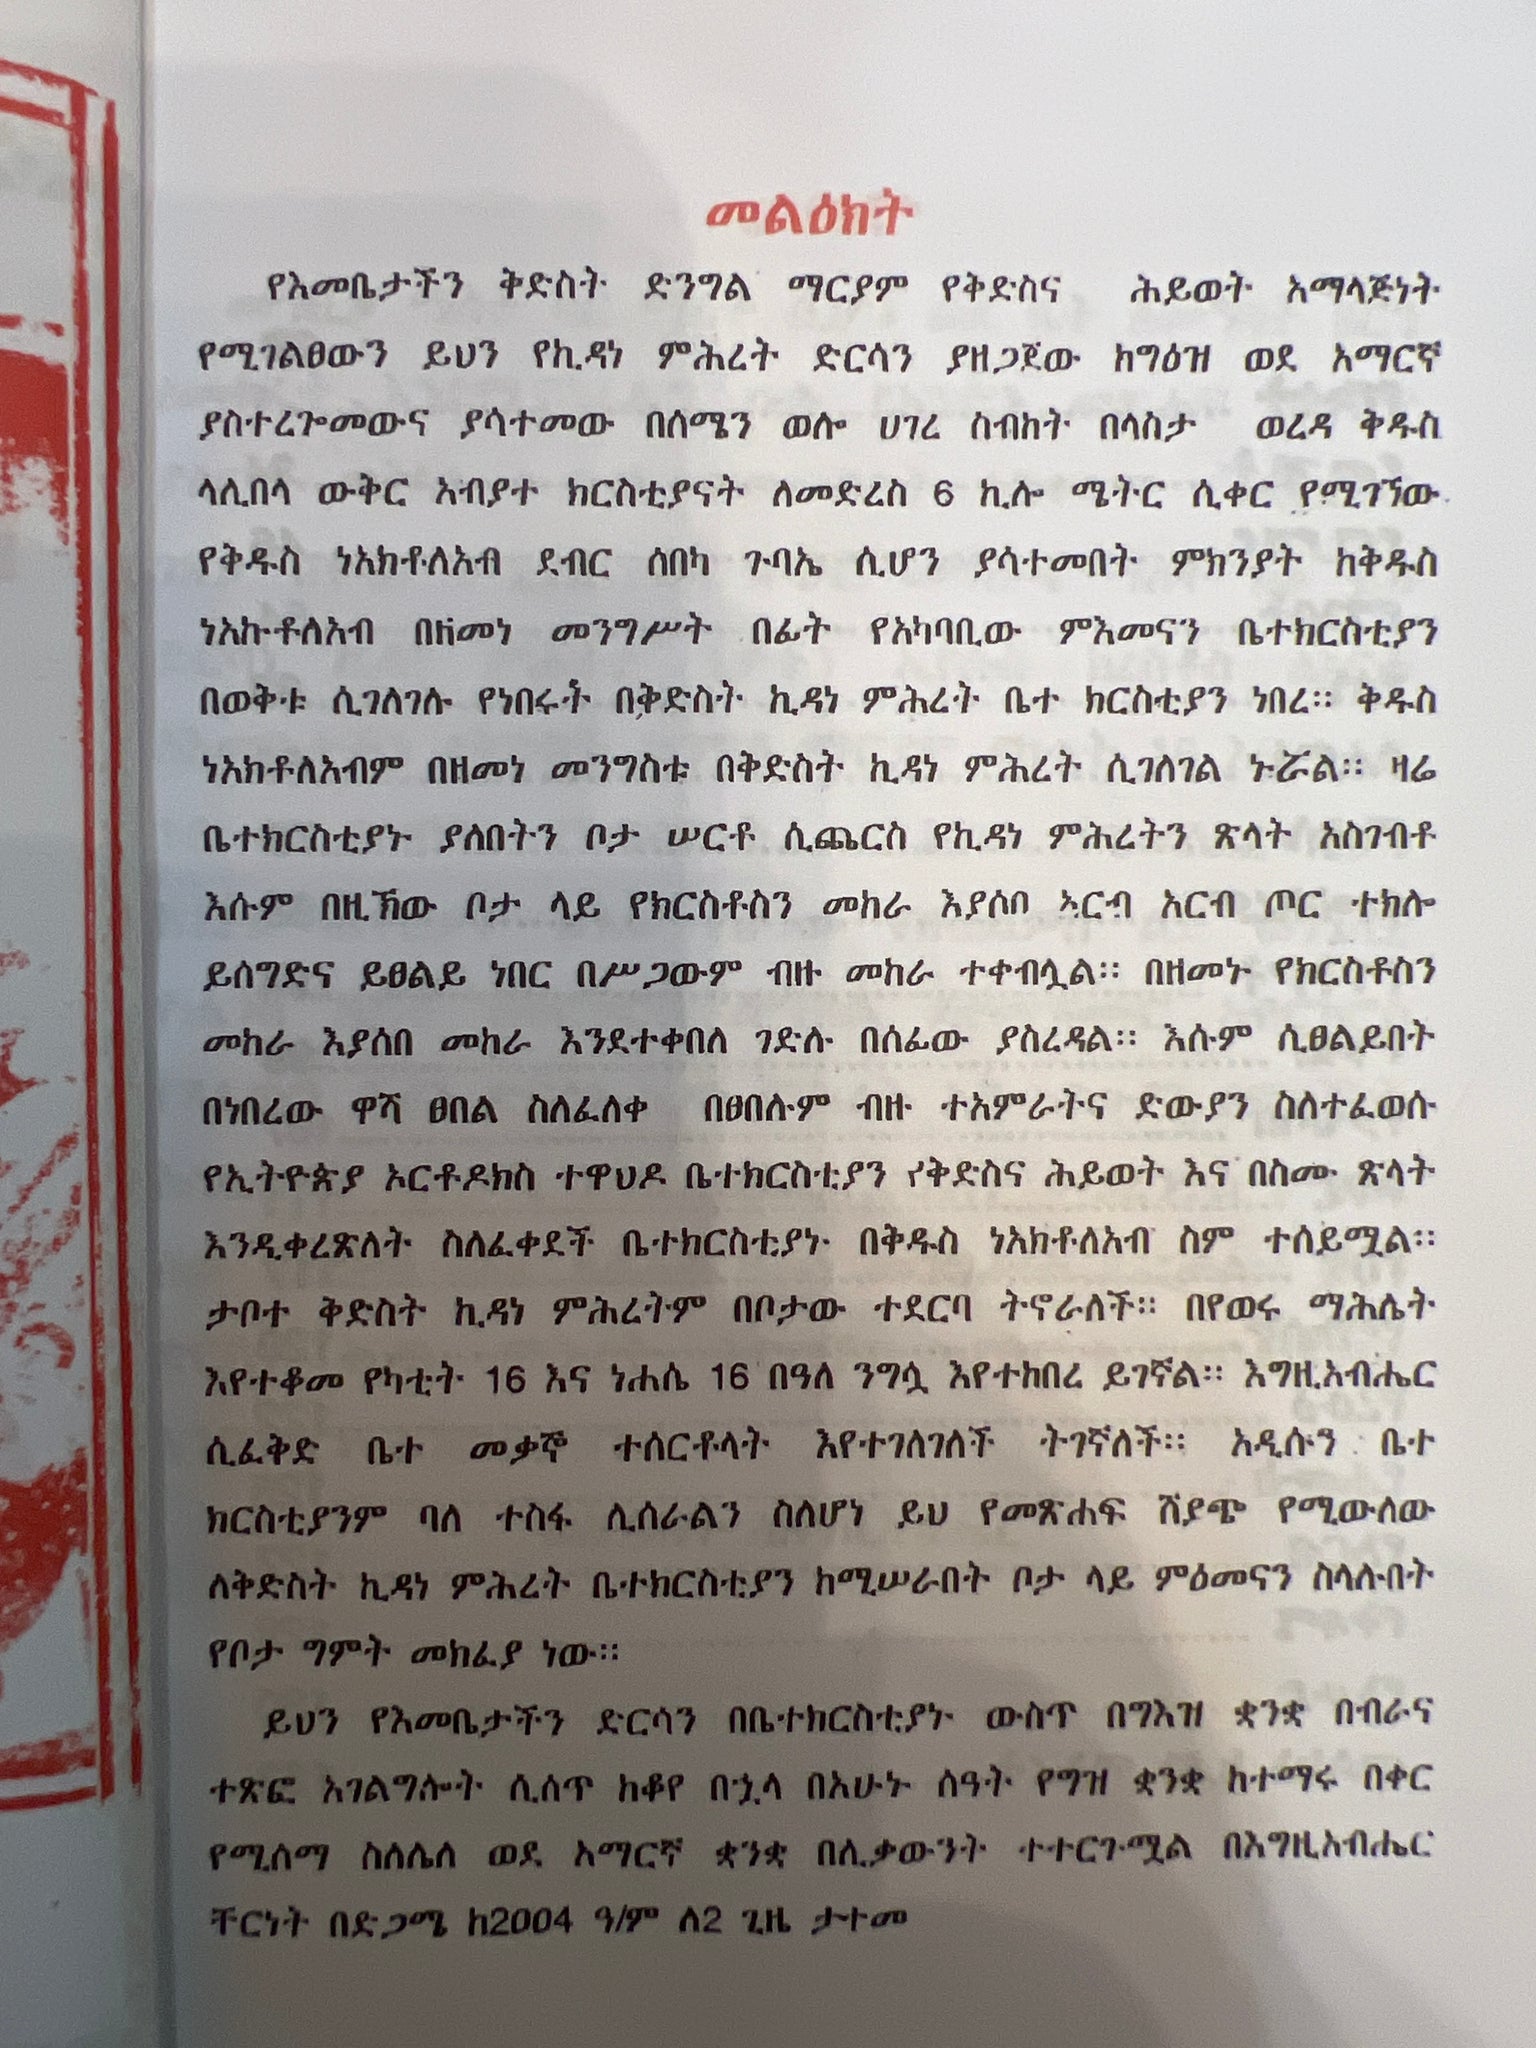 መልዕክት
የእመቤታችን ቅድስት ድንግል ማርያም የቅድስና ሕይወት አማላጅነት
የሚገልፀውን ይህን የኪዳነ ምሕረት ድርሳን ያዘጋጀው ከግዕዝ ወደ አማርኛ
ያስተረጐመውና ያሳተመው በሰሜን ወሎ ሀገረ ስብከት በላስታ ወረዳ ቅዱስ
ላሊበላ ውቅር አብያተ ክርስቲያናት ለመድረስ 6 ኪሎ ሜትር ሲቀር የሚገኘው
የቅዱስ ነአክቶለአብ ደብር ሰበካ ጉባኤ ሲሆን ያሳተመበት ምክንያት ከቅዱስ
ነአኩቶለአብ በዘመነ መንግሥት በፊት የአካባቢው ምእመናን ቤተክርስቲያን
በወቅቱ ሲገለገሉ የነበሩት በቅድስት ኪዳነ ምሕረት ቤተ ክርስቲያን ነበረ። ቅዱስ
ነአክቶለአብም በዘመነ መንግስቱ በቅድስት ኪዳነ ምሕረት ሲገለገል ኑሯል። ዛሬ
ቤተክርስቲያኑ ያለበትን ቦታ ሠርቶ ሲጨርስ የኪዳነ ምሕረትን ጽላት አስገብቶ
እሱም በዚኽው ቦታ ላይ የክርስቶስን መከራ እያሰበ ኣርብ አርብ ጦር ተክሎ
ይሰግድና ይፀልይ ነበር በሥጋውም ብዙ መከራ ተቀብሏል። በዘመኑ የክርስቶስን
መከራ እያሰበ መከራ እንደተቀበለ ገድሉ በሰፊው ያስረዳል። እሱም ሲፀልይበት
በነበረው ዋሻ ፀበል ስለፈለቀ በፀበሉም ብዙ ተአምራትና ድውያን ስለተፈወሱ
የኢትዮጵያ ኦርቶዶክስ ተዋህዶ ቤተክርስቲያን የቅድስና ሕይወት እና በስሙ ጽላት
እንዲቀረጽለት ስለፈቀደች ቤተክርስቲያኑ በቅዱስ ነአክቶለአብ ስም ተሰይሟል።
ታቦተ ቅድስት ኪዳነ ምሕረትም በቦታው ተደርባ ትኖራለች። በየወሩ ማሕሌት
እየተቆመ የካቲት 16 እና ነሐሴ 16 በዓለ ንግሷ እየተከበረ ይገኛል። እግዚአብሔር
ሲፈቅድ ቤተ መቃኞ ተሰርቶላት እየተገለገለች ትገኛለች። አዲሱን ቤተ
ክርስቲያንም ባለ ተስፋ ሊሰራልን ስለሆነ ይህ የመጽሐፍ ሽያጭ የሚውለው
ለቅድስት ኪዳነ ምሕረት ቤተክርስቲያን ከሚሠራበት ቦታ ላይ ምዕመናን ስላሉበት
የቦታ ግምት መክፈያ ነው።
ይህን የእመቤታችን ድርሳን በቤተክርስቲያኑ ውስጥ በግእዝ ቋንቋ በብራና
ተጽፎ አገልግሎት ሲሰጥ ከቆየ በኋላ በአሁኑ ሰዓት የግዝ ቋንቋ ከተማሩ በቀር
የሚሰማ ስለሌለ ወደ አማርኛ ቋንቋ በሊቃውንት ተተርጉሟል በእግዚአብሔር
ቸርነት በድጋሜ ከ2004 ዓ/ም ለ2 ጊዜ ታተመ